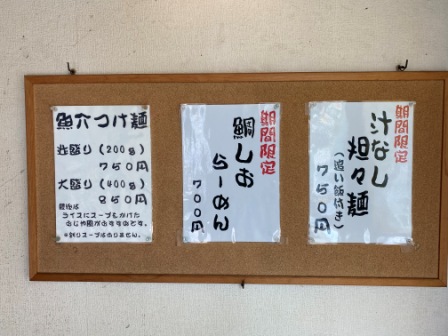 魚穴つけ麺
並盛り(200g)
750円
大盛り(400g)
850円
ライスにスープをかけた
おじや風がおすすめです。
※割りスープはありません。
期間限定
鯛しお
らーめん
700円
期間限定
汁なし
担々麺
(追い飯付き)
750円